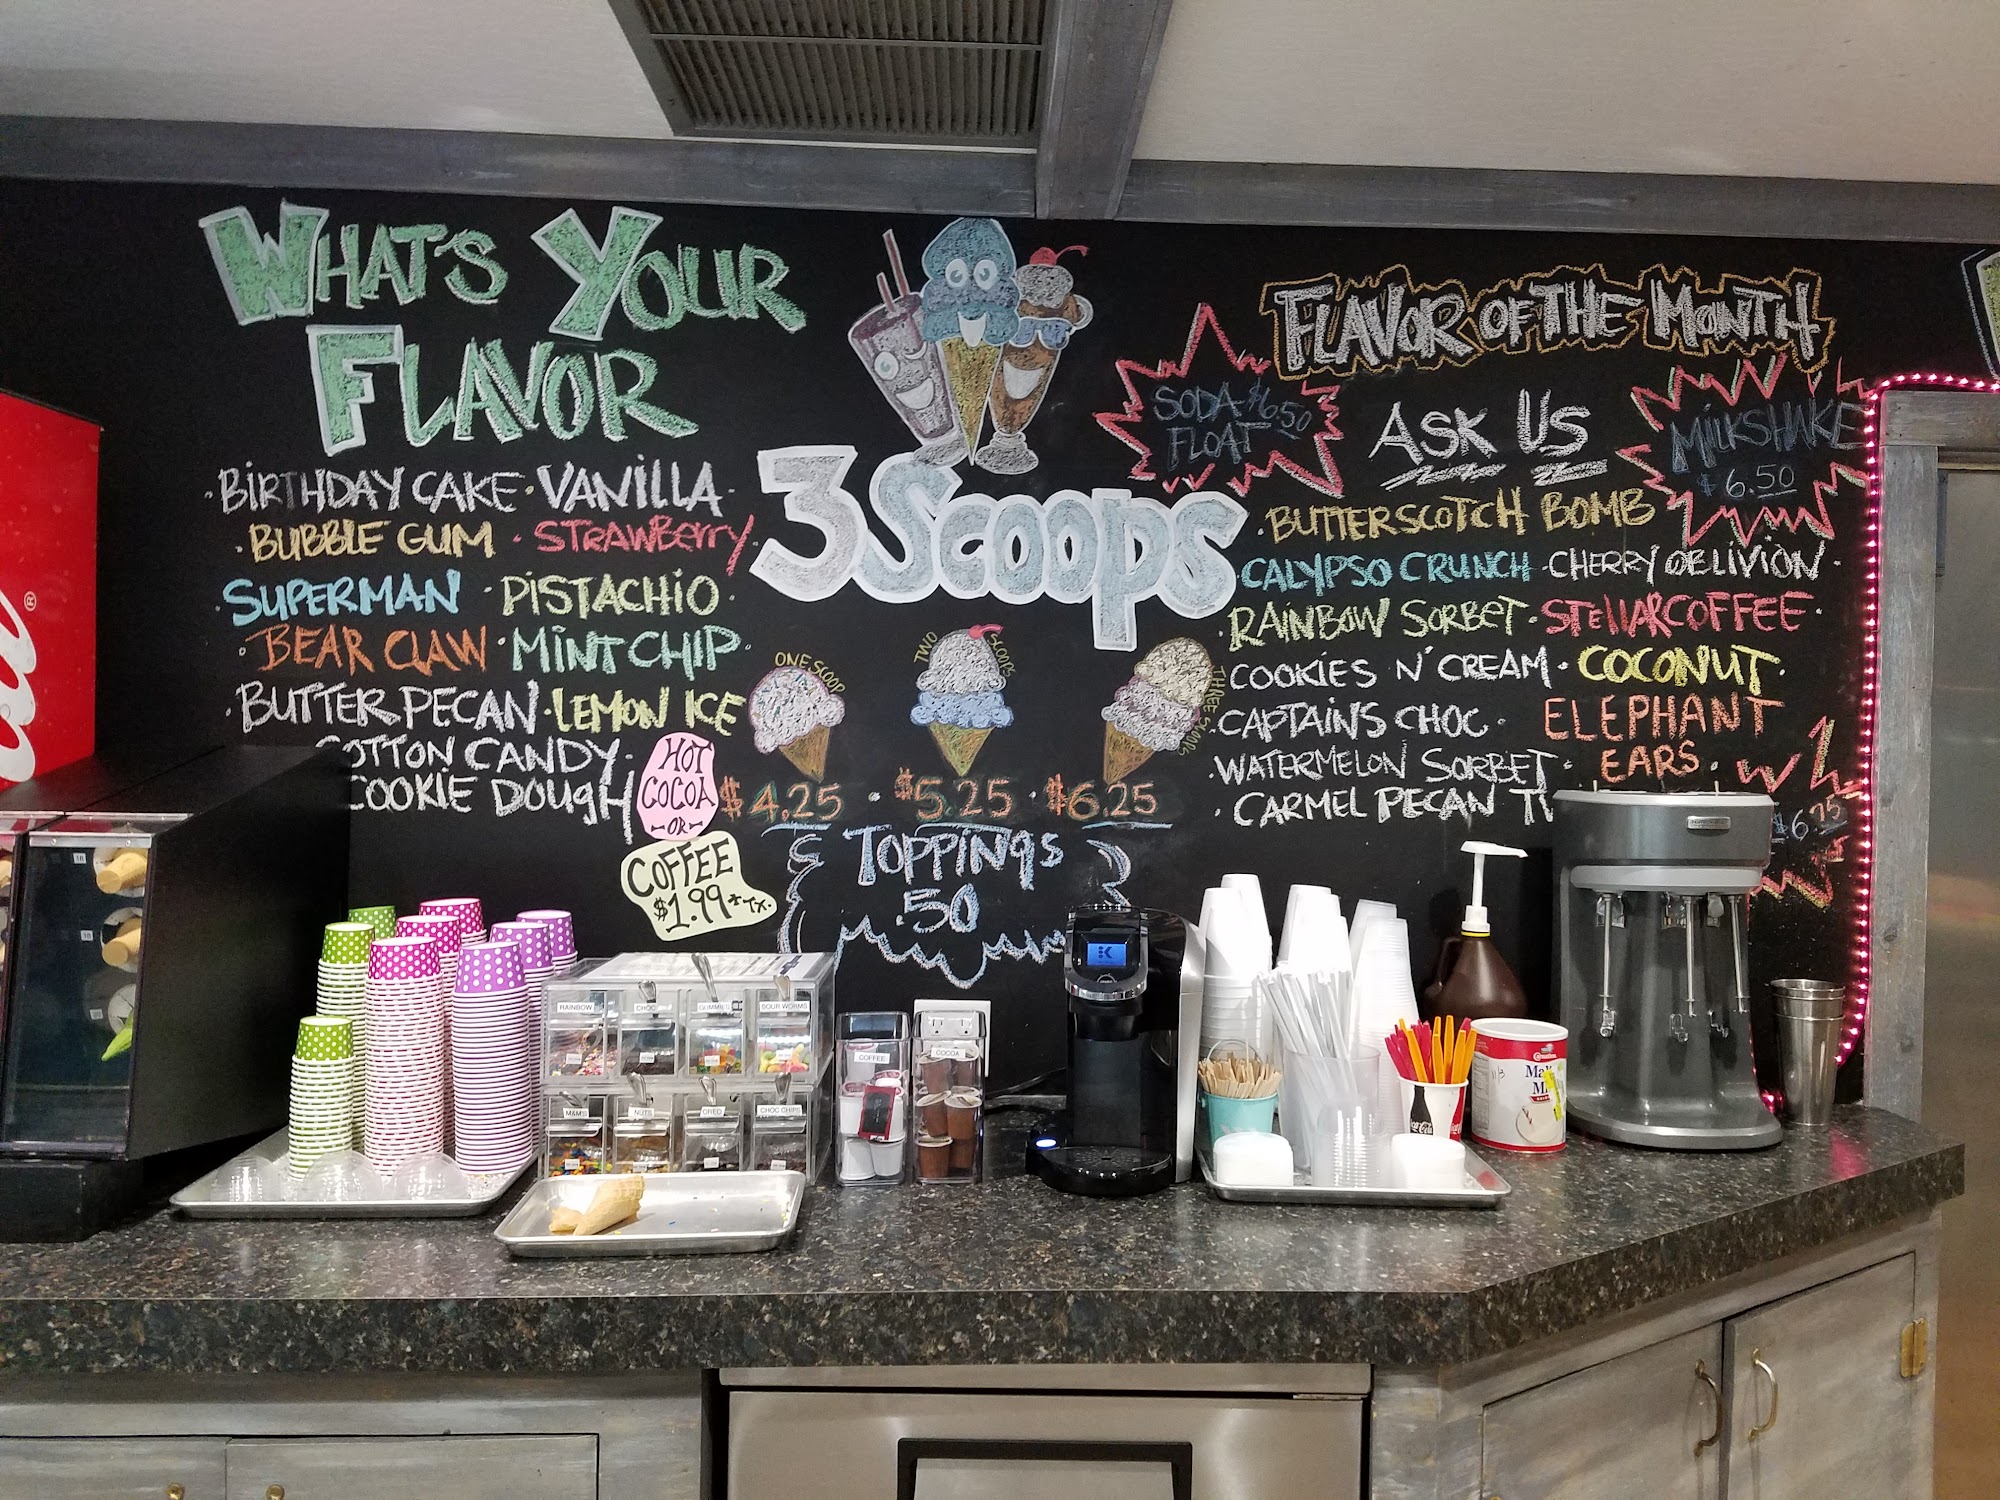 WHAT'S YOUR
FLAVOR
·BIRTHDAY CAKE·VANILLA·
·BUBBLE GUM · STRAWBERRY·
SUPERMAN ·PISTACHIO·
·BEAR CLAW·MINT CHIP·
·BUTTER PECAN·LEMON ICE
COTTON CANDY·
COOKIE DOUGH
HOT
COCOA
-OR-
COFFEE
$1.99 + TX.
3 SCOOPS
ONE SCOOP
TWO SCOOPS
THREE SCOOPS
$4.25 · $5.25 · $6.25
TOPPINGS
.50
FLAVOR OF THE MONTH
ASK US
SODA $6.50
FLOAT
MILKSHAKE
$6.50
·BUTTERSCOTCH BOMB
·CALYPSO CRUNCH ·CHERRY OBLIVION·
·RAINBOW SORBET·STELLARCOFFEE·
·COOKIES N' CREAM·COCONUT·
·CAPTAINS CHOC· ELEPHANT
EARS·
·WATERMELON SORBET·
·CARMEL PECAN
$6.25
RAINBOW
CHOC
GUMMIES
SOUR WORMS
M&M'S
NUTS
OREO
CHOC CHIPS
COFFEE
COCOA
K
Coca-Cola
Carnation